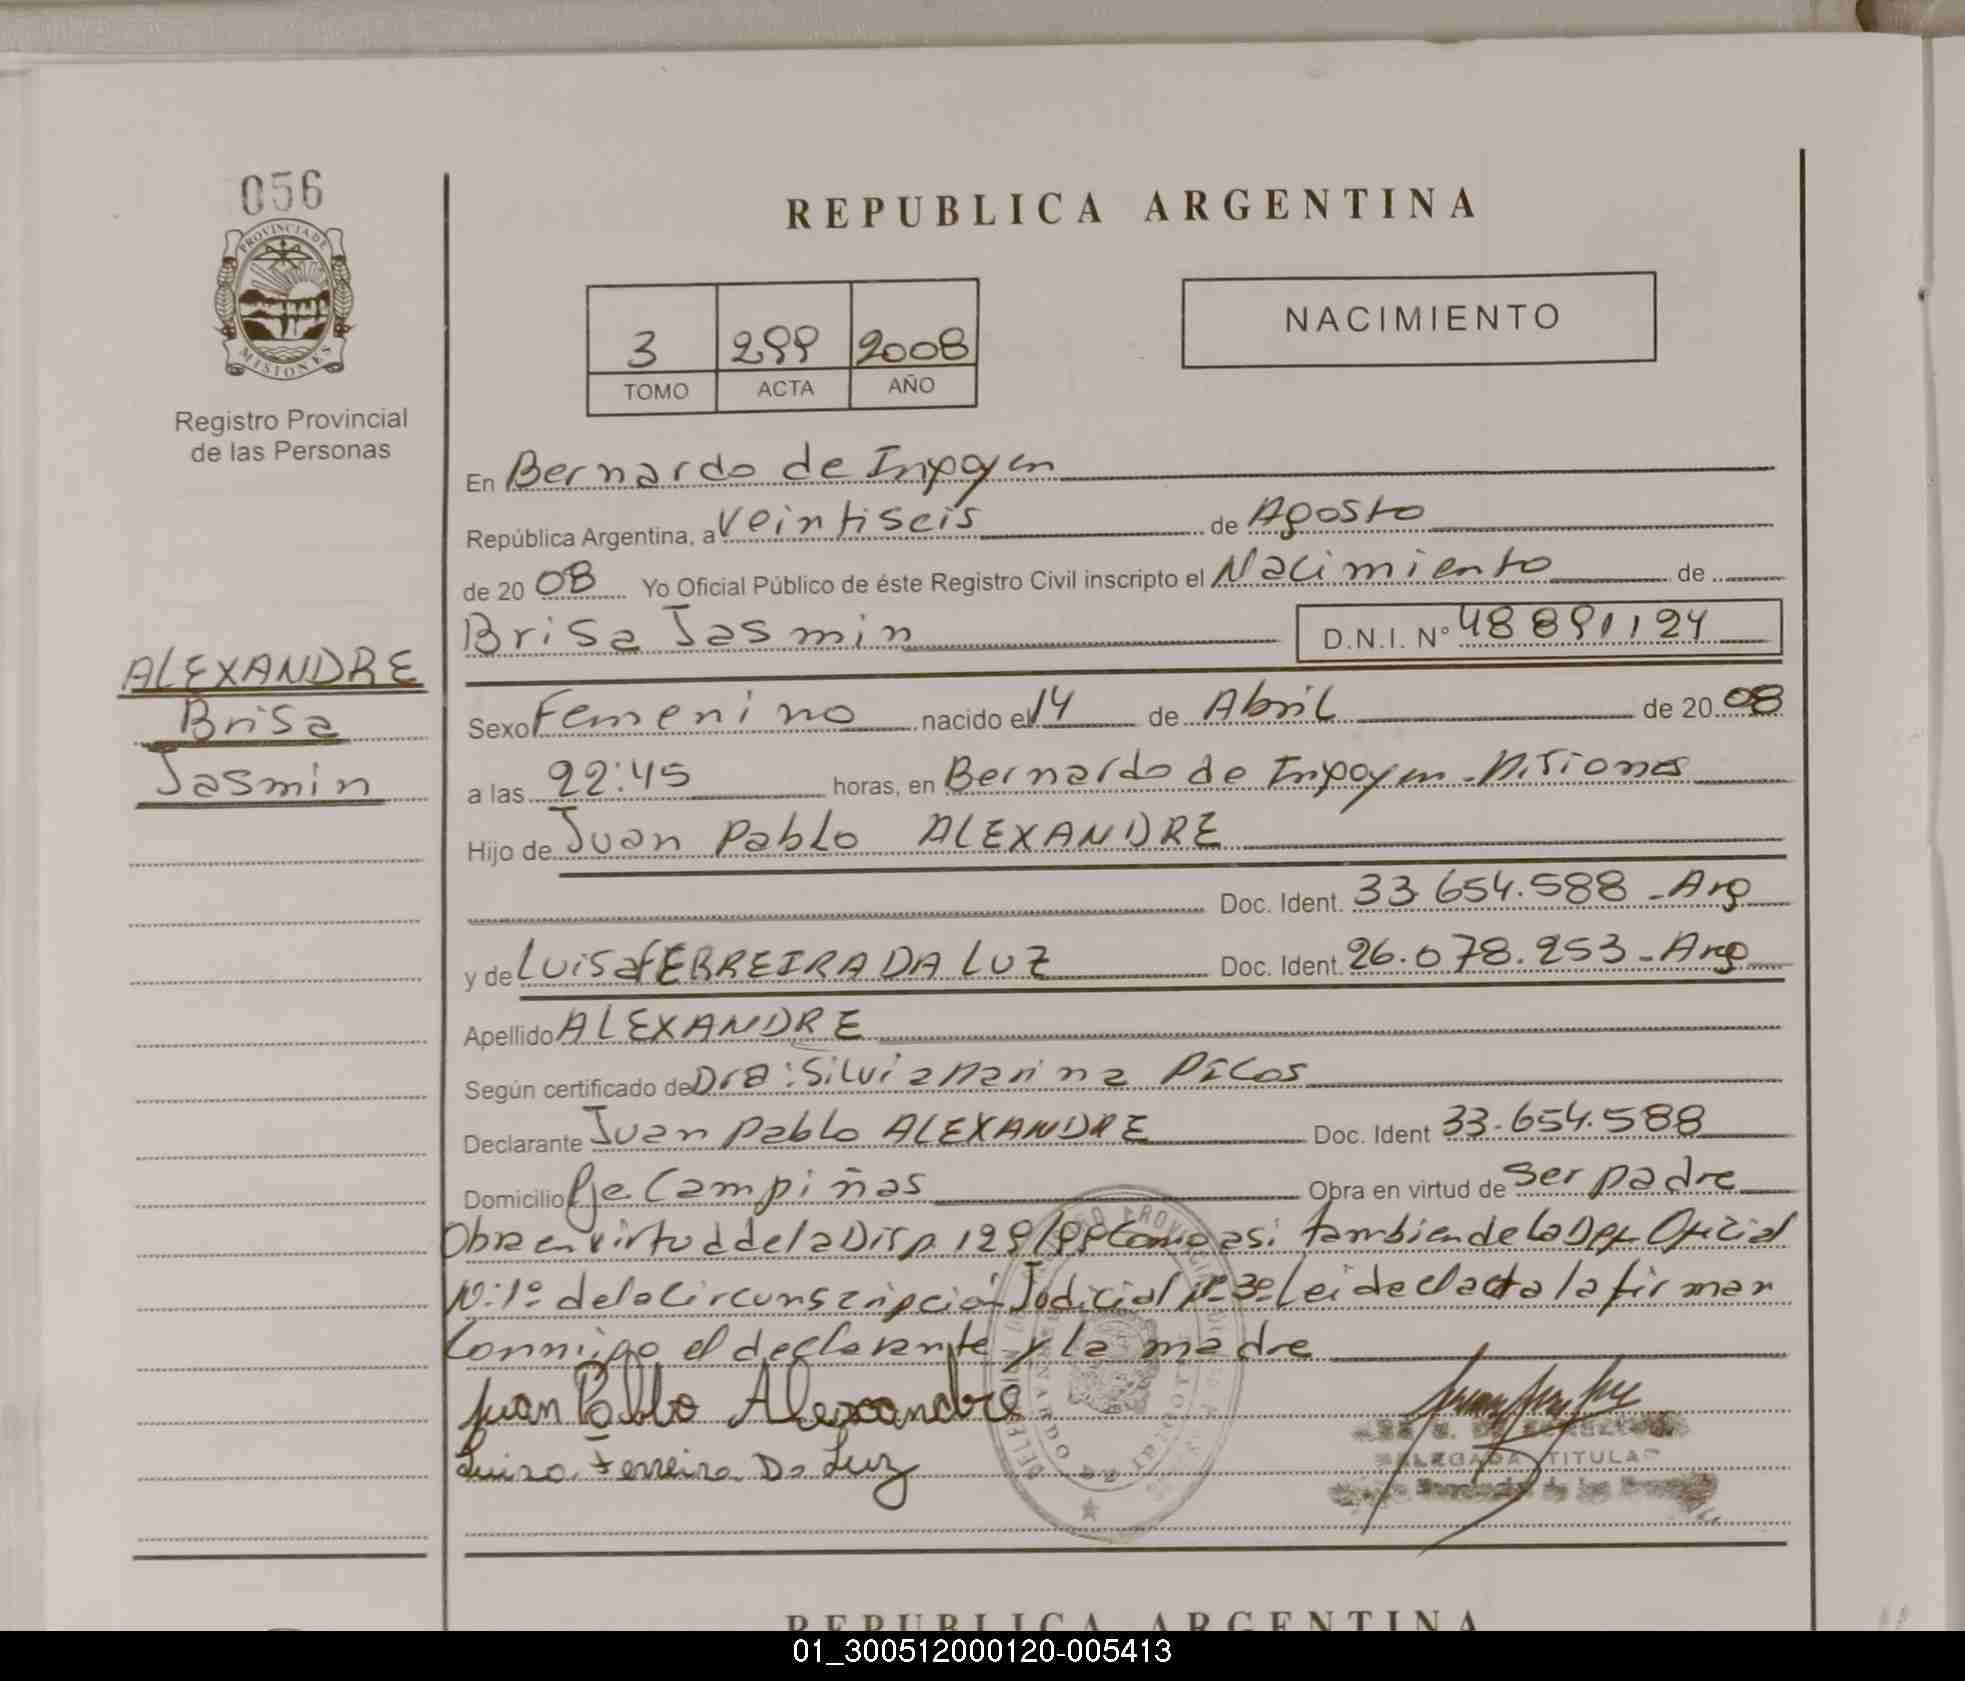 056
PROVINCIA DE
MISIONES
Registro Provincial
de las Personas
ALEXANDRE
Brisa
Jasmin
REPUBLICA ARGENTINA
3 299 2008
TOMO ACTA AÑO
NACIMIENTO
En Bernardo de Irigoyen
República Argentina, a Veintiseis de Agosto
de 2008 Yo Oficial Público de éste Registro Civil inscripto el Nacimiento de
Brisa Jasmin D.N.I. Nº 48891124
Sexo Femenino nacido el 14 de Abril de 2008
a las 22:45 horas, en Bernardo de Irigoyen - Misiones
Hijo de Juan Pablo ALEXANDRE
Doc. Ident. 33.654.588 - Arg
y de Luisa FERREIRA DA LUZ Doc. Ident. 26.078.253 - Arg
Apellido ALEXANDRE
Según certificado de Dra: Silvia Marina
Declarante Juan Pablo ALEXANDRE Doc. Ident 33.654.588
Domicilio Pje Campiñas Obra en virtud de ser padre
Obra en virtud de la Disp. 129/99 Como asi tambien de la Oficial
Nº 1º de la Circunscripción Judicial Nº 3º Leida el acta la firman
Conmigo el declarante y la madre
Juan Pablo Alexandre
Luisa Ferreira Da Luz
DELEGADA TITULAR
REPUBLICA ARGENTINA
01_300512000120-005413